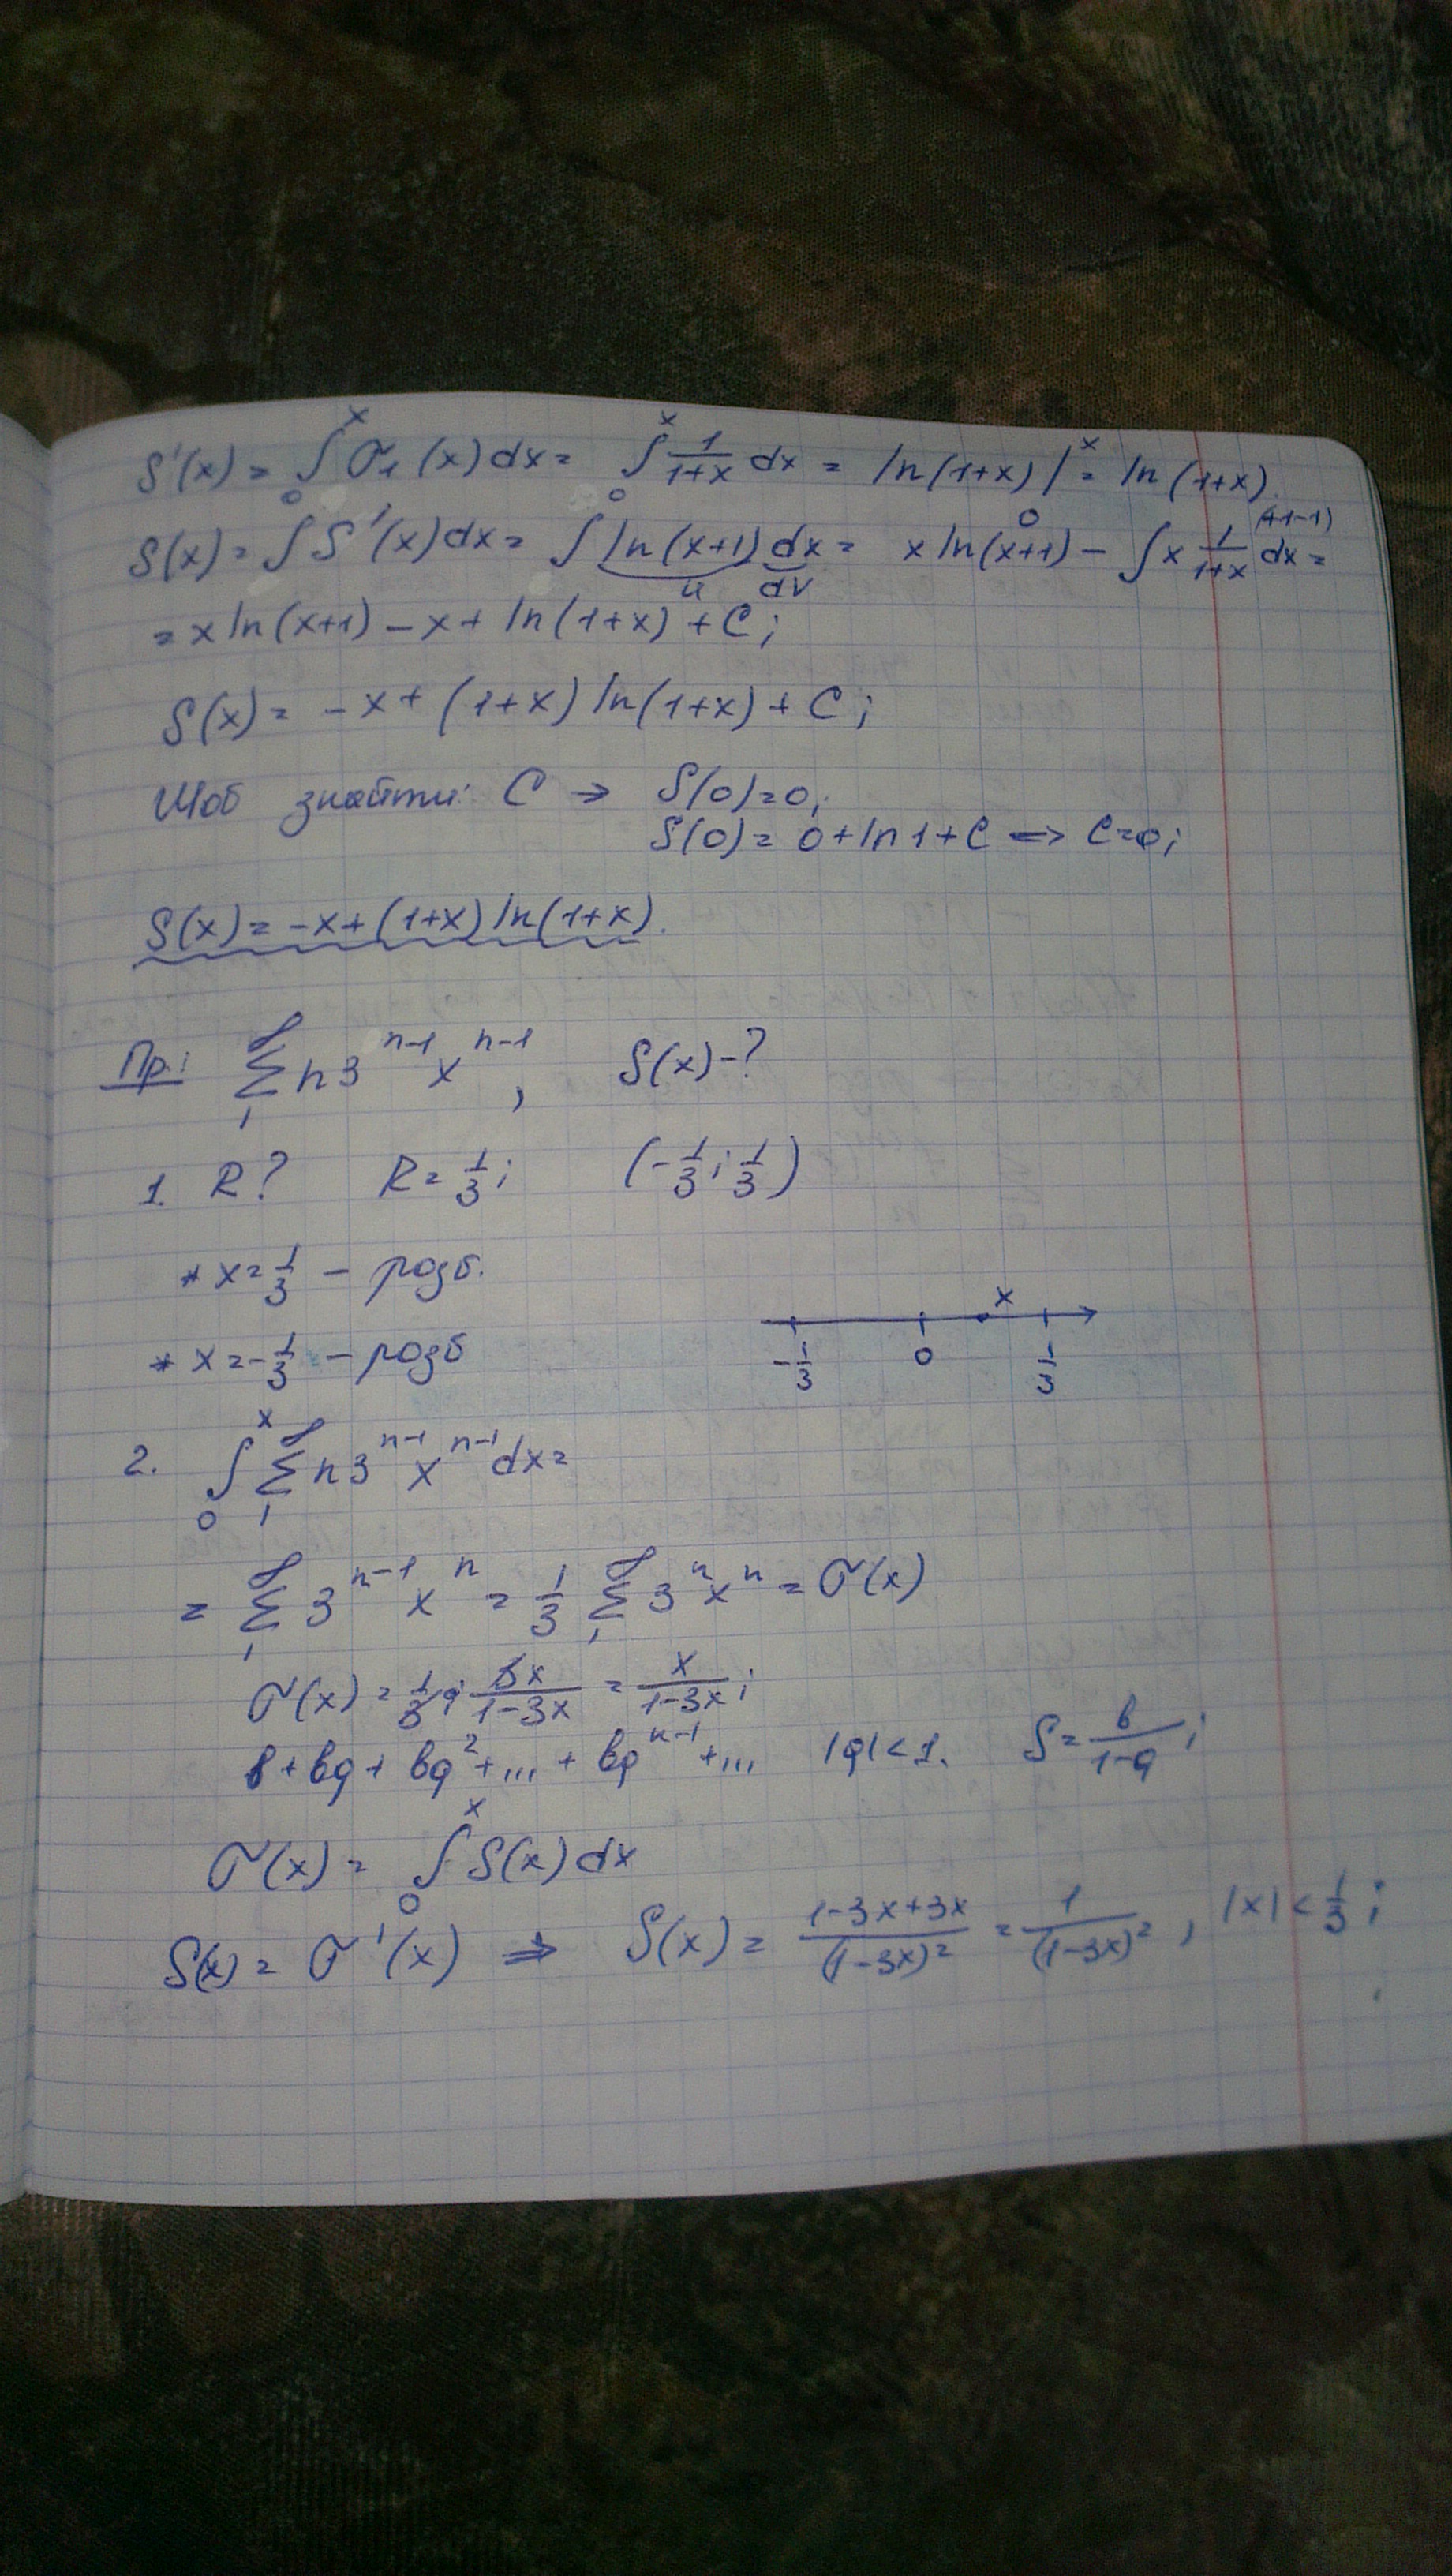 S'(x) = ∫₀ˣ σ₁(x)dx = ∫₀ˣ 1/(1+x) dx = ln(1+x)|₀ˣ = ln(1+x).
S(x) = ∫S'(x)dx = ∫ln(x+1)dx = x ln(x+1) - ∫x 1/(1+x) dx =
u dv (+1-1)
= x ln(x+1) - x + ln(1+x) + C;
S(x) = -x + (1+x) ln(1+x) + C;
Щоб знайти C → S(0)=0;
S(0) = 0 + ln1 + C => C=0;
S(x) = -x + (1+x) ln(1+x).
Пр: ∑₁^∞ n3ⁿ⁻¹xⁿ⁻¹, S(x)-?
1. R? R = 1/3; (-1/3; 1/3)
* x = 1/3 - розб.
* x = -1/3 - розб
x
-1/3 0 1/3
2. ∫₀ˣ ∑₁^∞ n3ⁿ⁻¹xⁿ⁻¹dx =
= ∑₁^∞ 3ⁿ⁻¹xⁿ = 1/3 ∑₁^∞ 3ⁿxⁿ = σ(x)
σ(x) = 1/3 · 3x/(1-3x) = x/(1-3x);
b + bq + bq² + ... + bqⁿ⁻¹ + ... |q|<1. S = b/(1-q);
σ(x) = ∫₀ˣ S(x)dx
S(x) = σ'(x) => S(x) = (1-3x+3x)/(1-3x)² = 1/(1-3x)², |x| < 1/3;